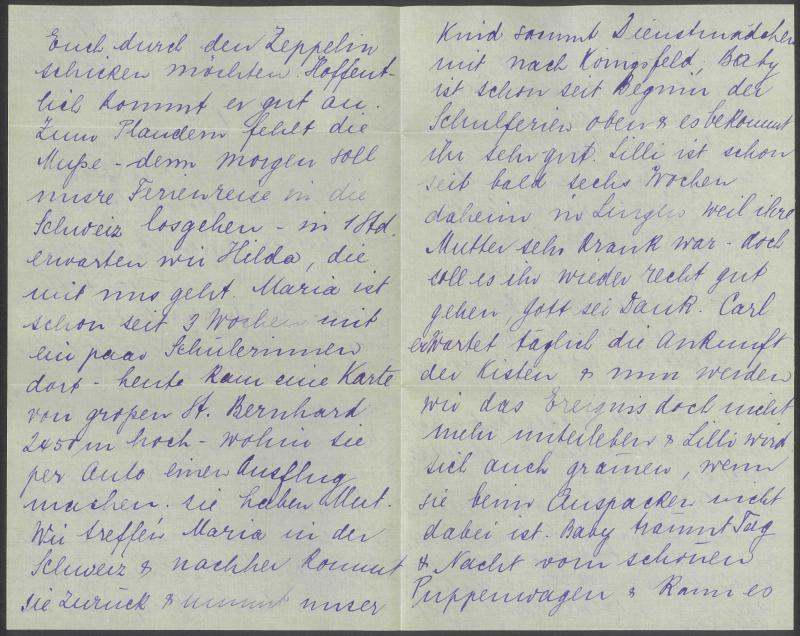 Euch durch den Zeppelin
schicken möchten. Hoffent-
lich kommt er gut an.
Zum Plaudern fehlt die
Muße - denn morgen soll
unsre Ferienreise in die
Schweiz losgehen - in 1 Std.
erwarten wir Hilda, die
mit uns geht. Maria ist
schon seit 3 Wochen mit
ein paar Schülerinnen
dort - heute kam eine Karte
von großen St. Bernhard
2450 m hoch - wohin sie
per Auto einen Ausflug
machen. Sie haben Mut.
Wir treffen Maria in der
Schweiz & nachher kommt
sie zurück & nimmt unser
Kind sammt Dienstmädchen
mit nach Königsfeld, Baby
ist schon seit Beginn der
Schulferien oben & es bekommt
ihr sehr gut. Lilli ist schon
seit bald sechs Wochen
daheim in weil ihre
Mutter sehr krank war - doch
soll es ihr wieder recht gut
gehen, Gott sei Dank. Carl
erwartet täglich die Ankunft
der Kisten & nun werden
wir das Ereignis doch nicht
mehr miterleben & Lilli wird
sich auch grämen, wenn
sie beim Auspacken nicht
dabei ist. Baby träumt Tag
& Nacht vom schönen
Puppenwagen & kann es